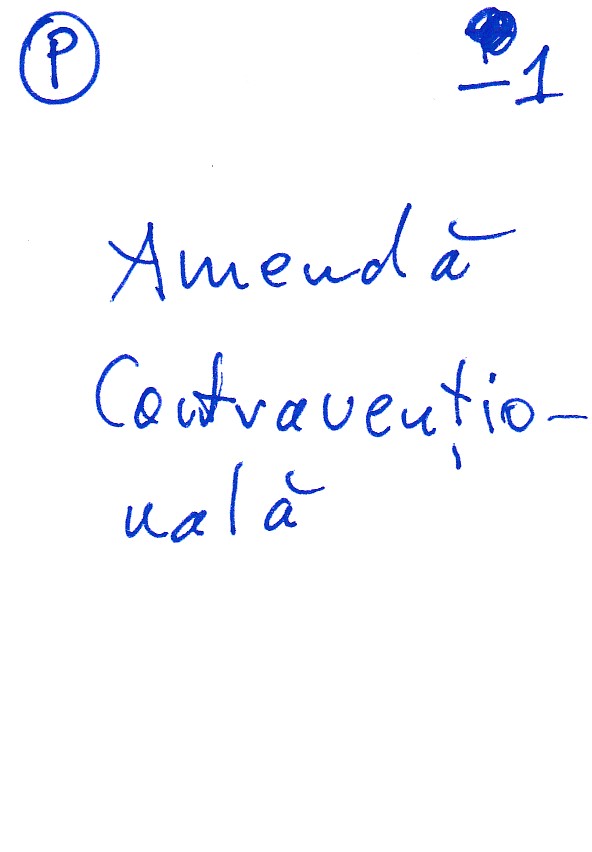 P
-1
Amendă
Contravenţio-
nală